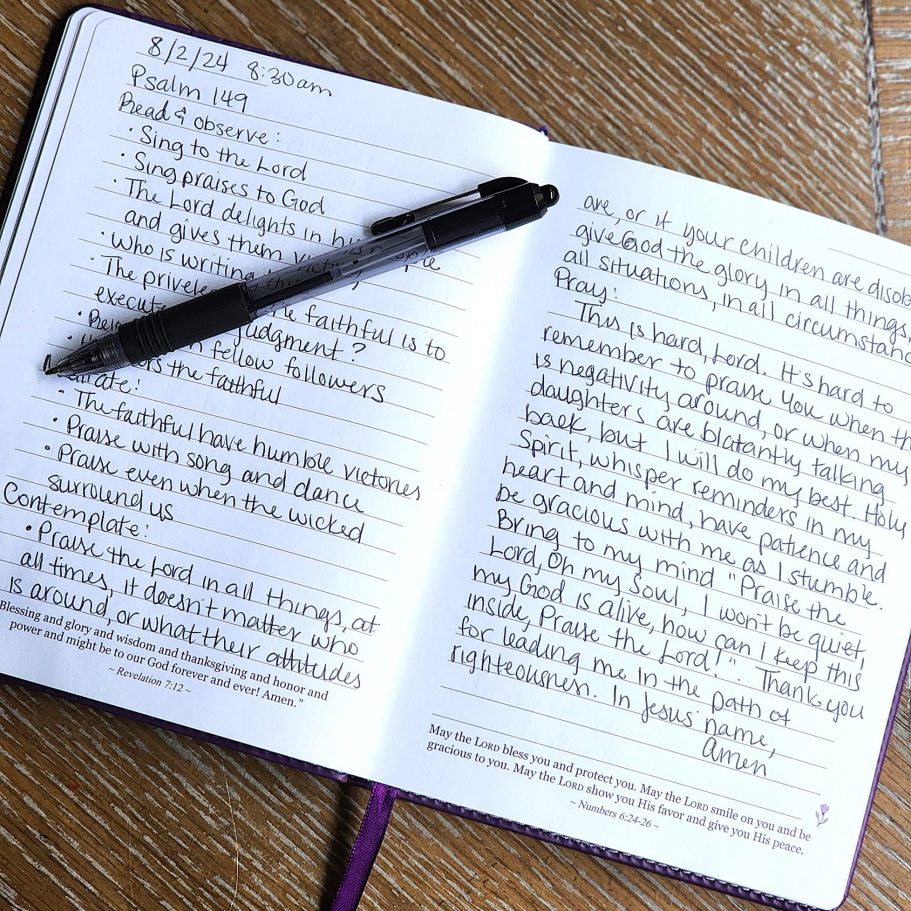 8/2/24 8:30am
Psalm 149
Read & observe:
• Sing to the Lord
• Sing praises to God
• The Lord delights in
and gives them
• Who is writing
• The
execute judgment?
faithful is to
fellow followers
the faithful
• The faithful have humble victories
• Praise with song and dance
• Praise even when the wicked
surround us
Contemplate:
• Praise the Lord in all things, at
all times, it doesn't matter who
is around, or what their attitudes
Blessing and glory and wisdom and thanksgiving and honor and
power and might be to our God forever and ever! Amen."
~ Revelation 7:12 ~
are, or if your children are
give God the glory in all things,
all situations, in all
Pray:
This is hard, Lord. It's hard to
remember to praise You when
is negativity around, or when my
daughters are blatantly talking
back, but I will do my best. Holy
Spirit, whisper reminders in my
heart and mind, have patience and
be gracious with me as I stumble.
Bring to my mind "Praise the
Lord, Oh my Soul, I won't be quiet,
my God is alive, how can I keep this
inside, Praise the Lord!". Thank you
for leading me in the path of
righteousness. In Jesus name,
Amen
May the LORD bless you and protect you. May the LORD smile on you and be
gracious to you. May the LORD show you His favor and give you His peace.
~ Numbers 6:24-26 ~